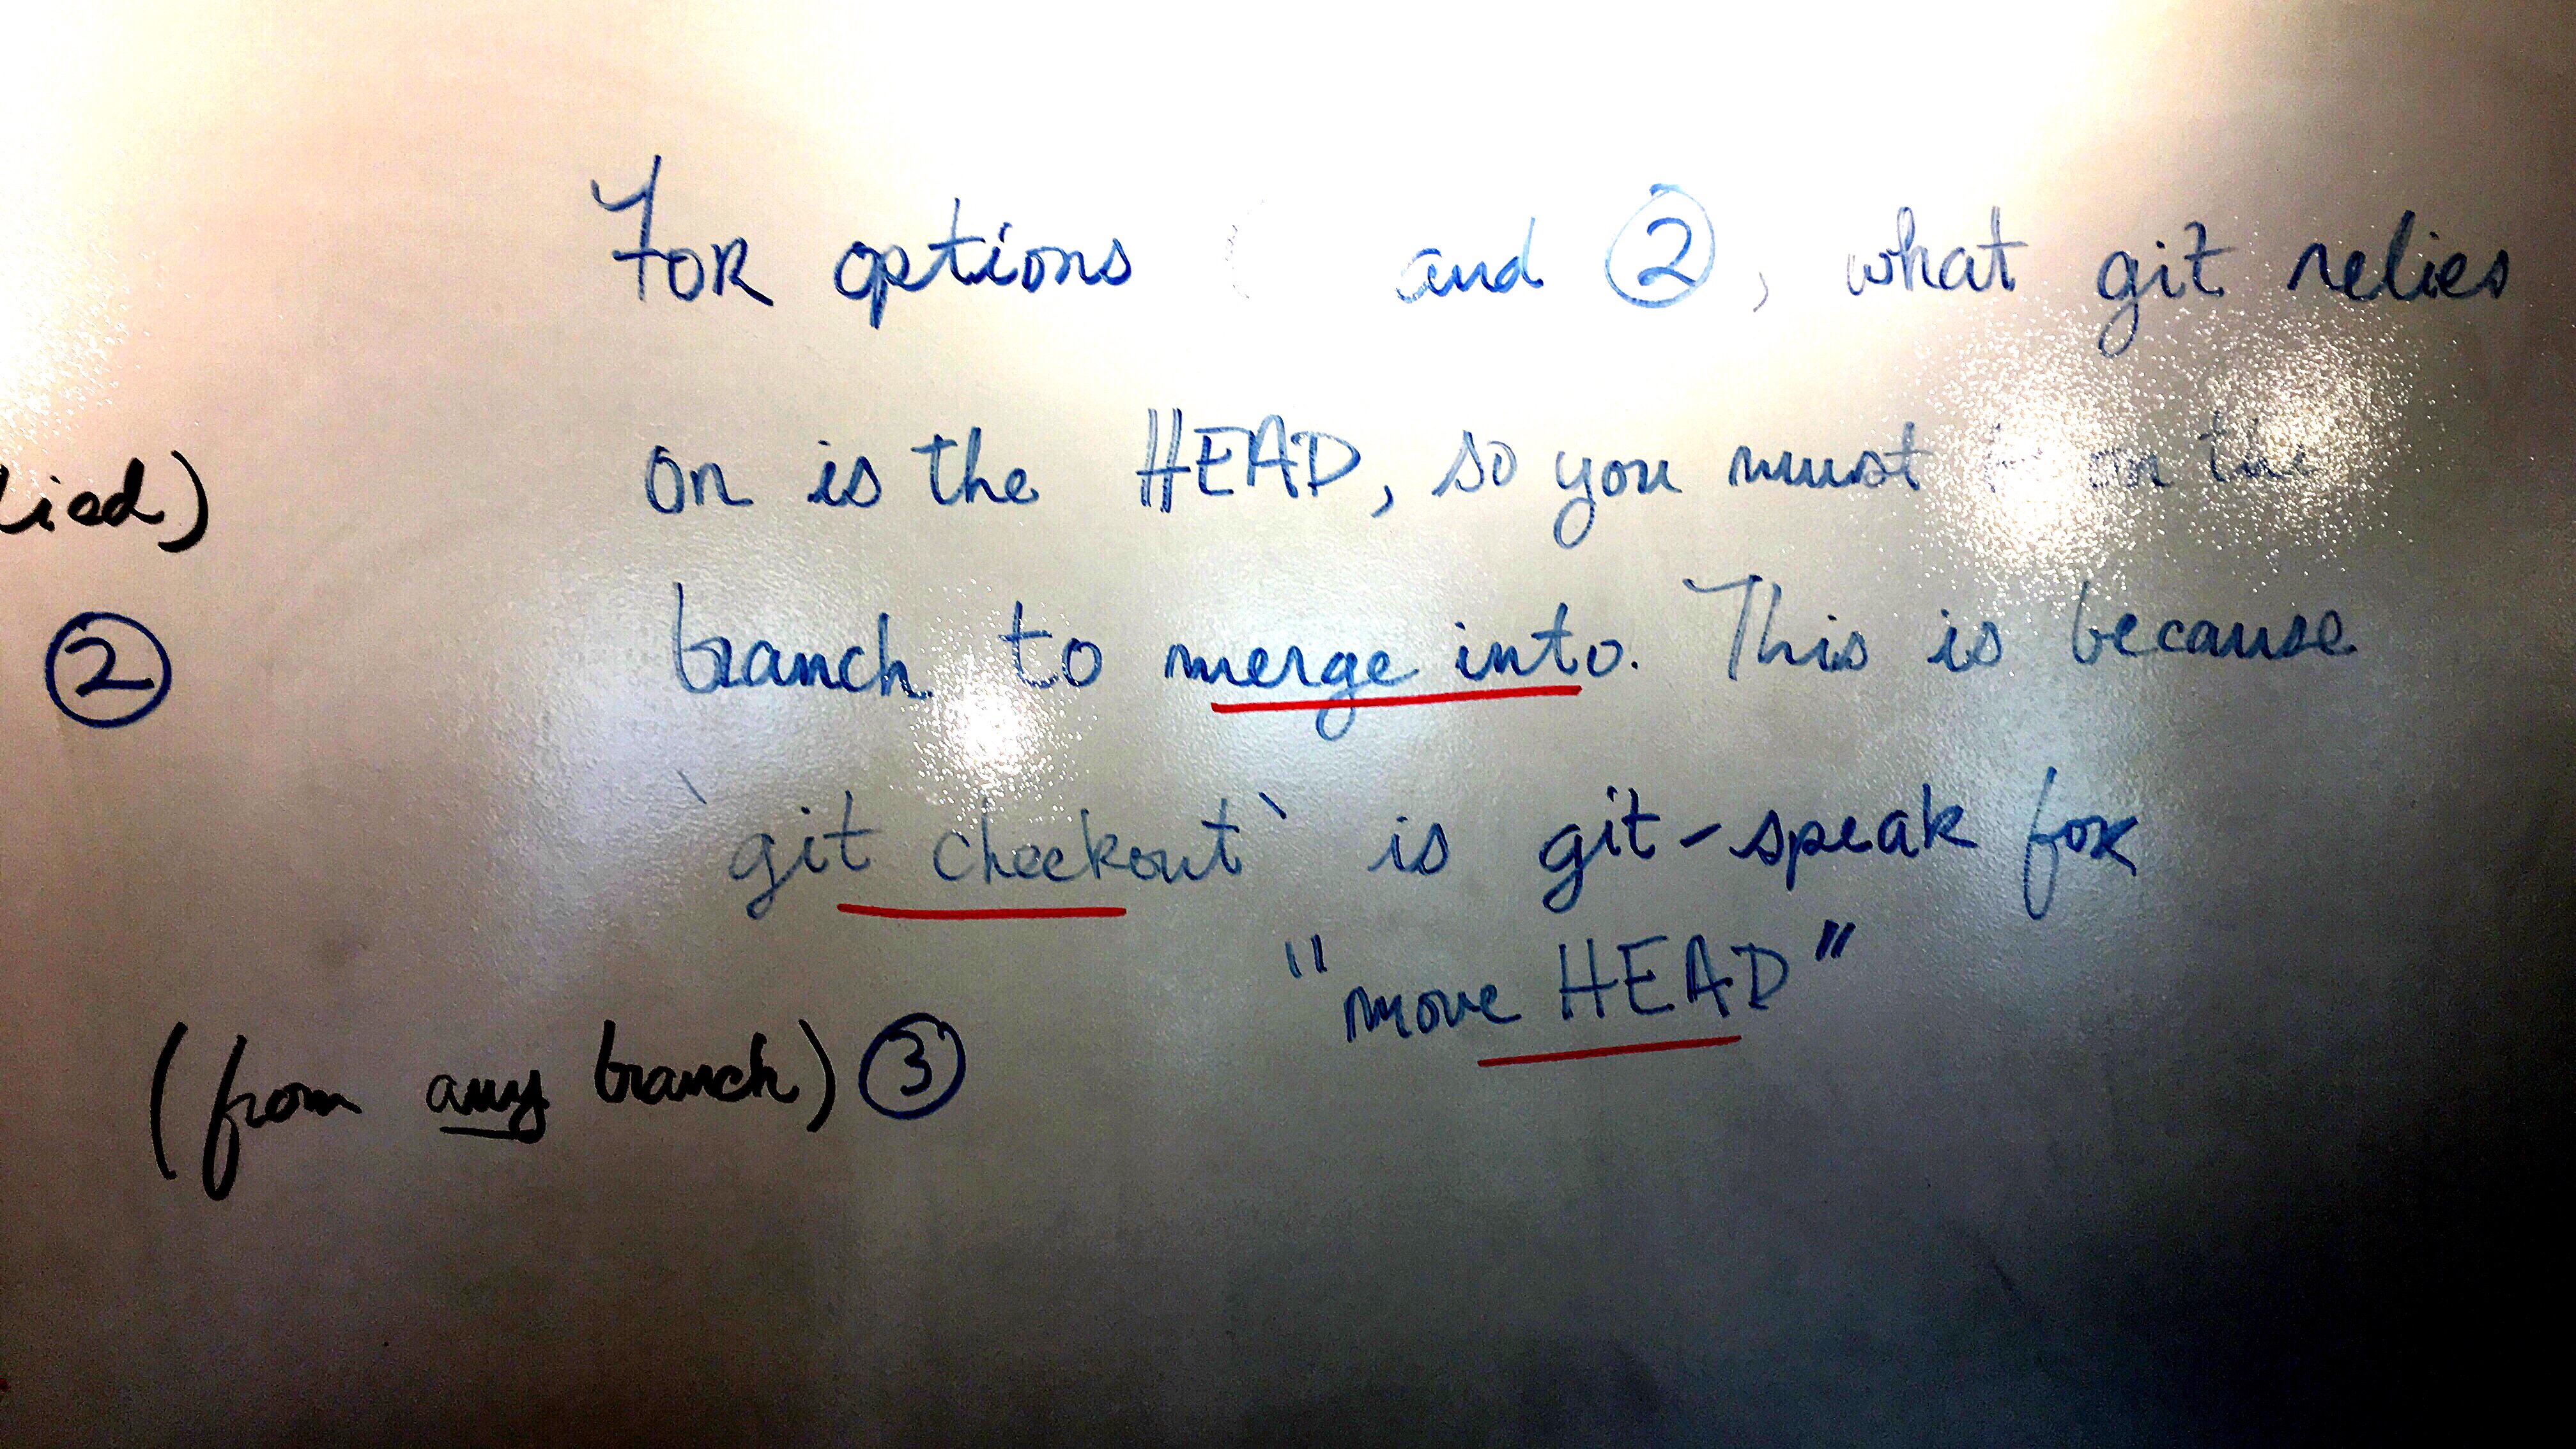 For options ( and ②, what git relies
on is the HEAD, so you must on the
lied)
② branch to merge into. This is because
`git checkout` is git-speak for
"move HEAD"
(from any branch) ③